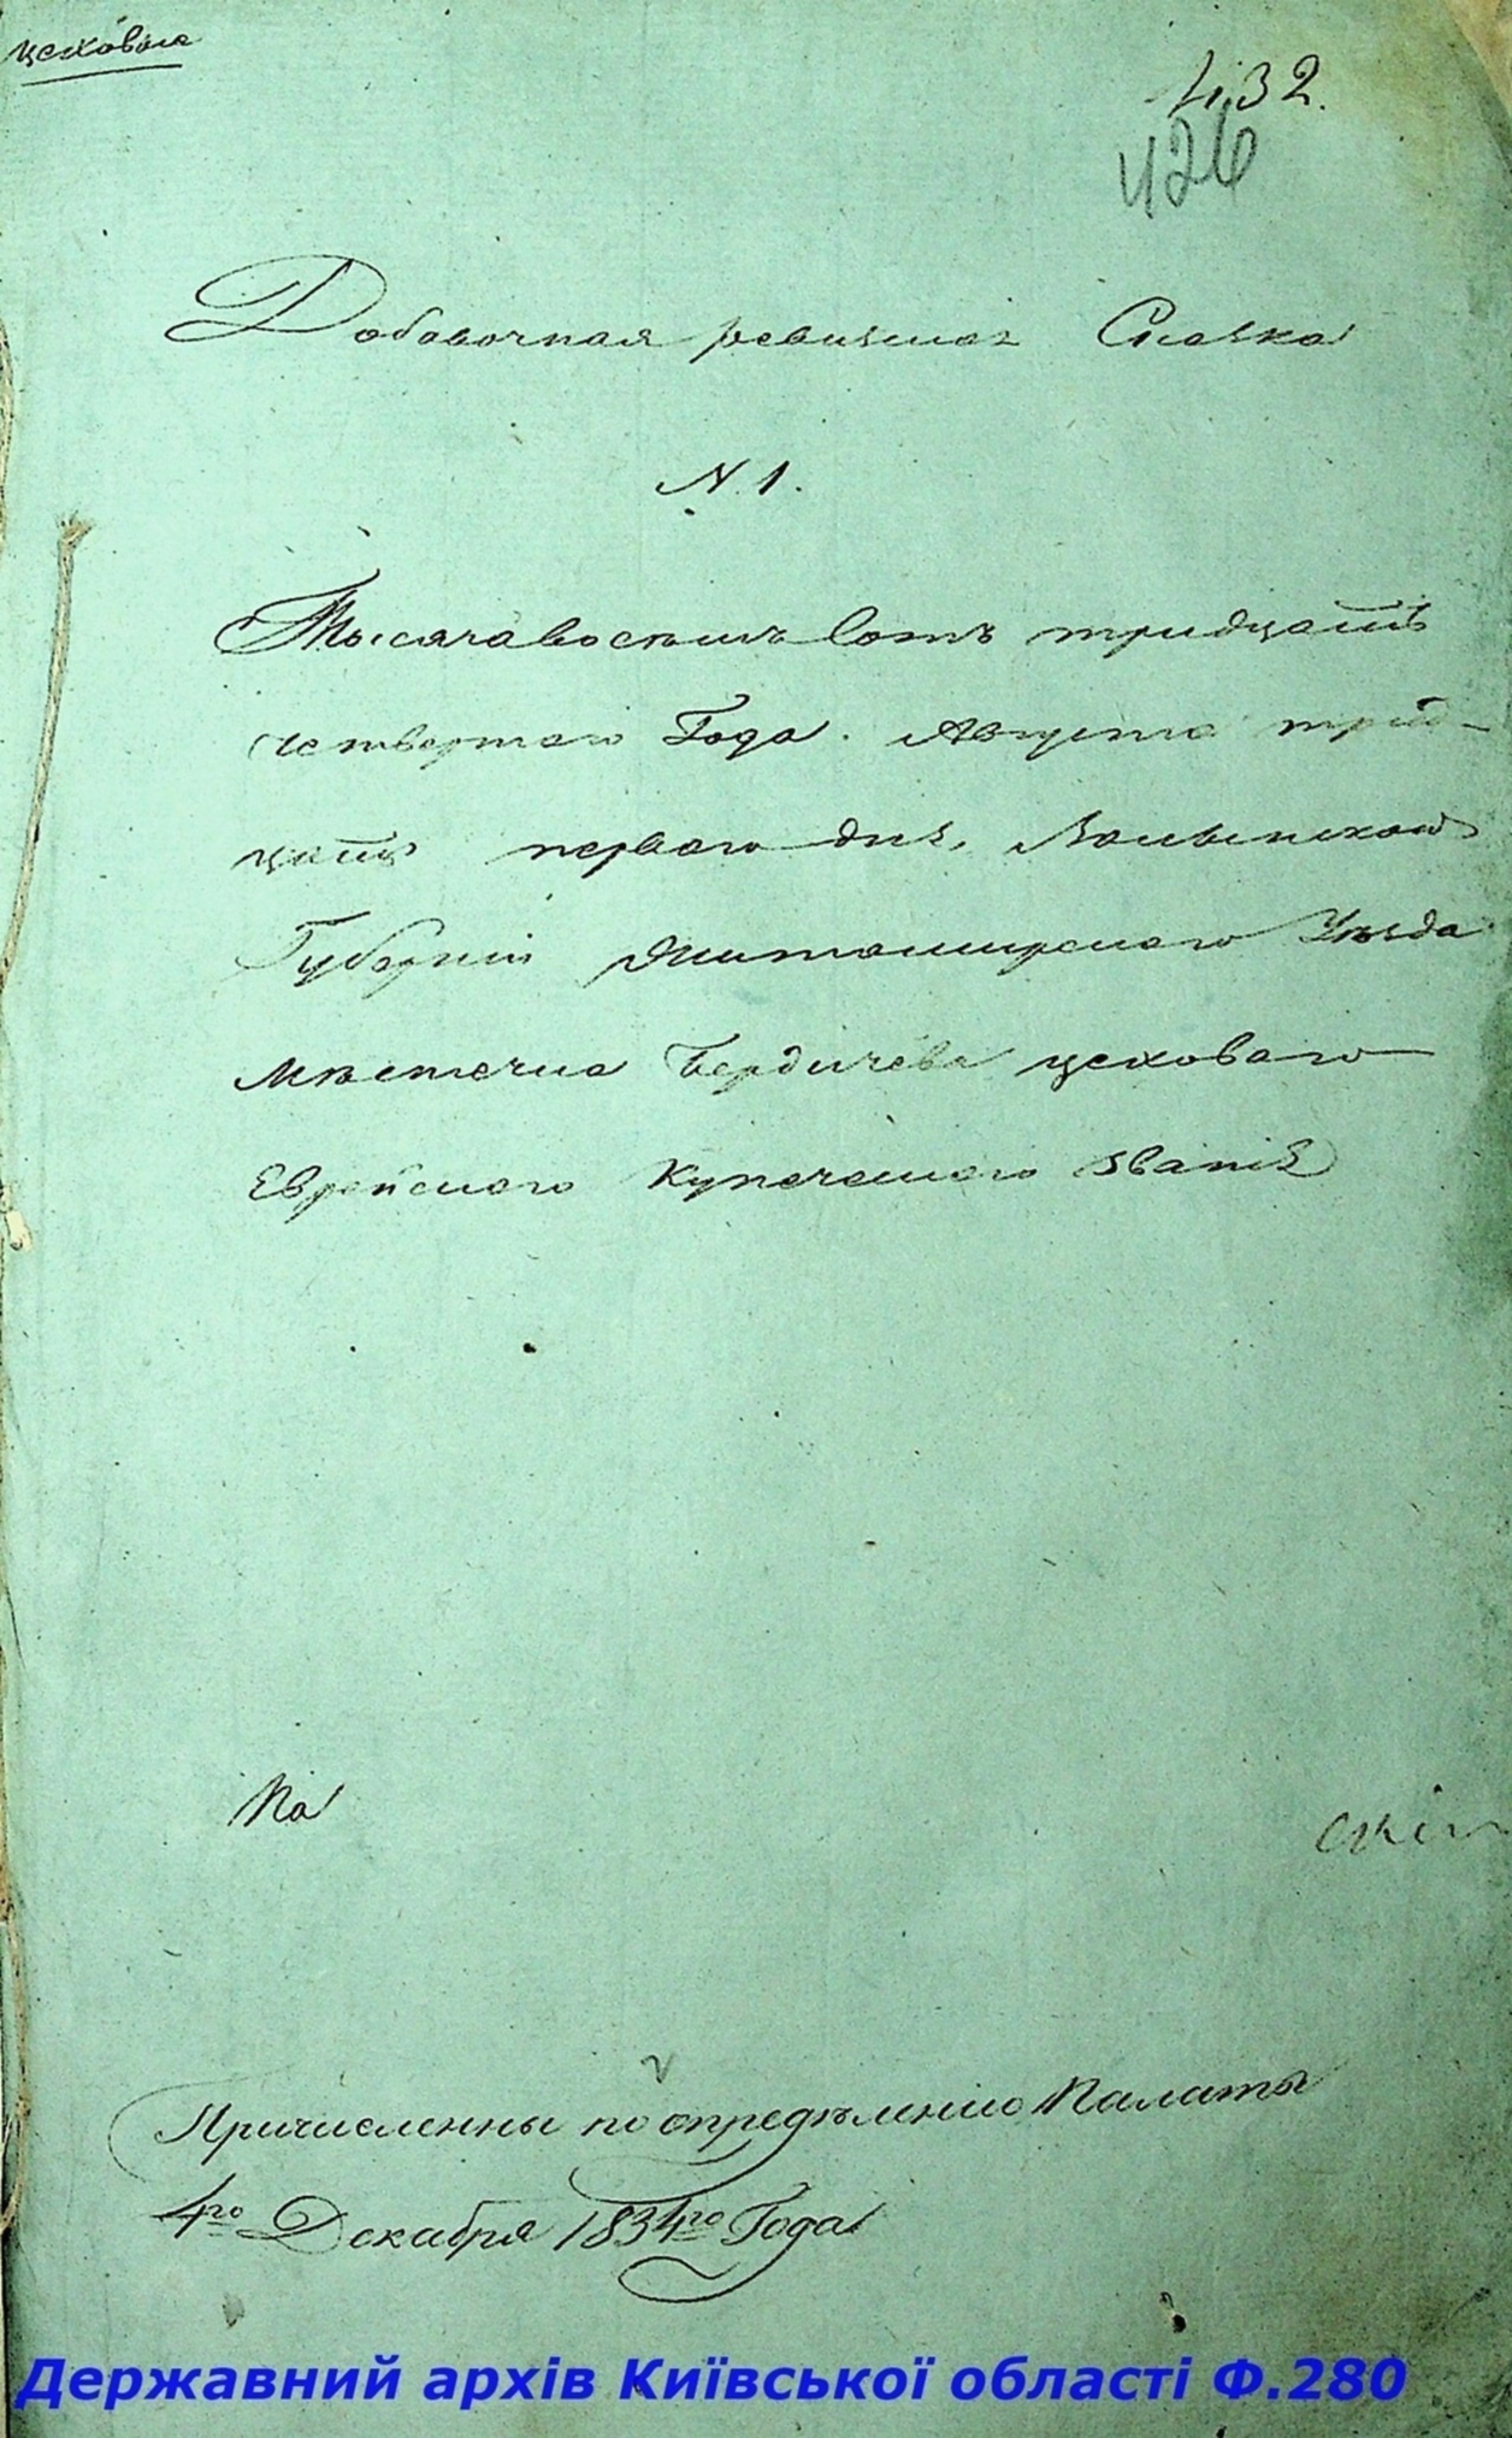 цеховые
432.
426
Добавочная ревизская Сказка
N. 1.
Тысяча восемь сотъ тридцать
четвертаго Года. Августа трид-
цать перваго дня, Волынской
Губерніи Житомирского Уѣзда
мѣстечка Бердичева цеховаго
Еврейского Купеческого званія
На
Причисленны по опредѣленію Палаты
4го Декабря 1834го Года
Державний архів Київської області Ф.280